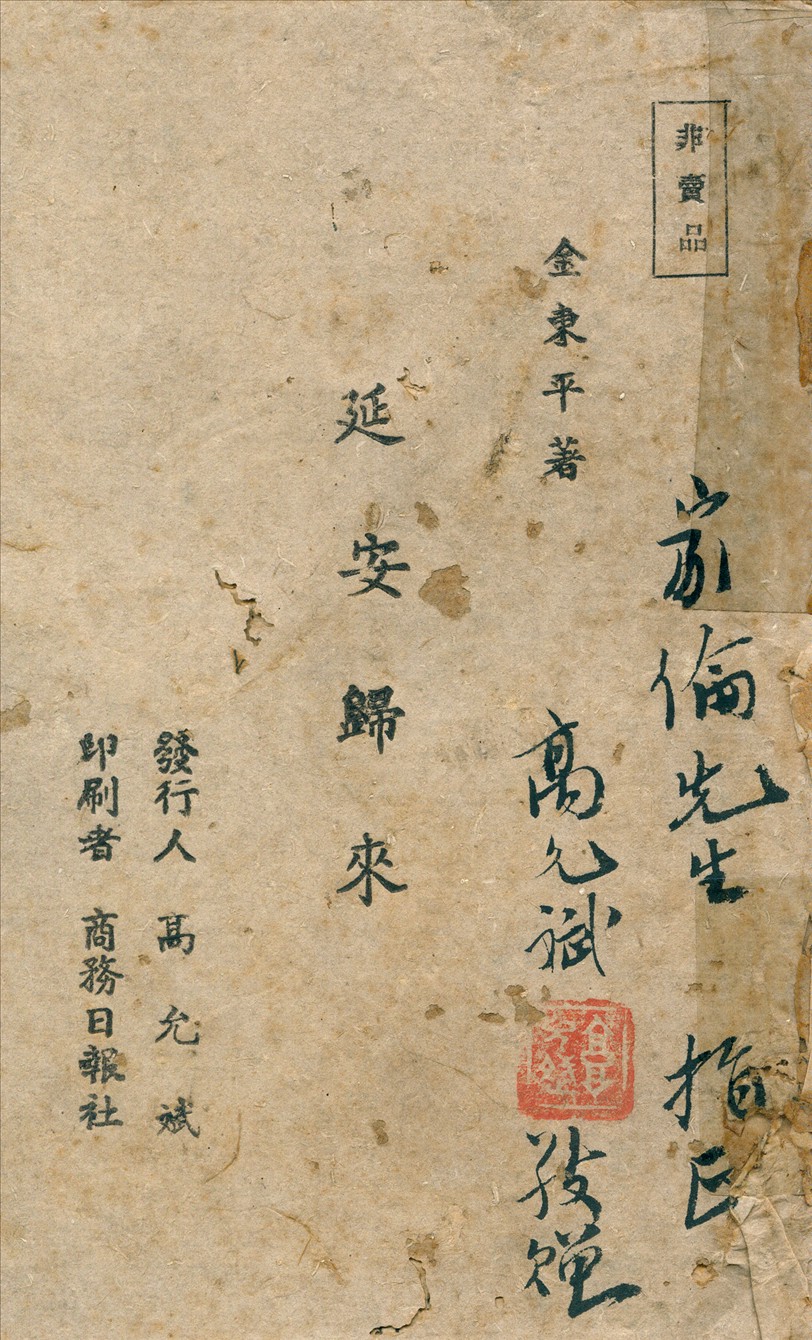 非賣品
家倫先生 指正
金東平著
高允斌
敬贈
延安歸來
發行人 高允斌
印刷者 商務日報社